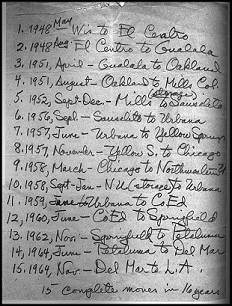 1. 1948 May Wis to El Centro
2. 1948 Aug El Centro to Gualala
3. 1951, April - Gualala to Oakland
4. 1951, August - Oakland to Mills Col.
5. 1952, Sept-Dec. - Mills (storage) to Sausalito
6. 1956, Sept - Sausalito to Urbana
7. 1957, June - Urbana to Yellow Springs
8. 1957, November - Yellow S. to Chicago
9. 1958, March - Chicago to Northwestern
10. 1958, Sept-Jan - N.U. (storage) to Urbana
11. 1959, June to Urbana to CoEd
12. 1960, June - CoEd to Springfield
13. 1962, Nov. - Springfield to Petaluma
14. 1964, June - Petaluma to Del Mar
15. 1964, Nov - Del Mar to L.A.
15 complete moves in 16 years